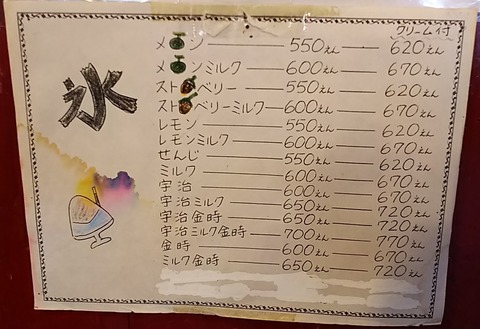 氷
クリーム付
メロン 550えん 620えん
メロンミルク 600えん 670えん
ストロベリー 550えん 620えん
ストロベリーミルク 600えん 670えん
レモン 550えん 620えん
レモンミルク 600えん 670えん
せんじ 550えん 620えん
ミルク 600えん 670えん
宇治 600えん 670えん
宇治ミルク 650えん 720えん
宇治金時 650えん 720えん
宇治ミルク金時 700えん 770えん
金時 600えん 670えん
ミルク金時 650えん 720えん